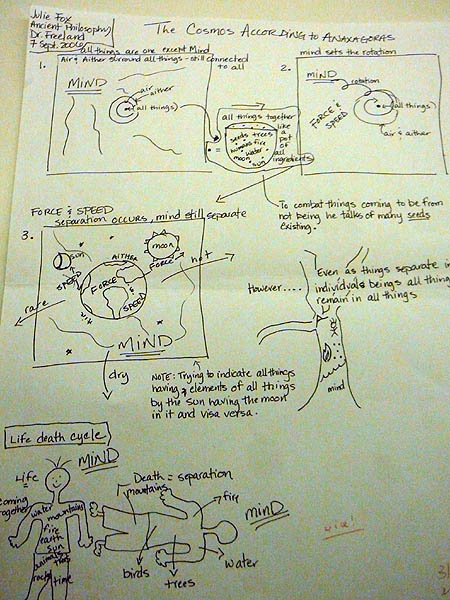 Julie Fox
Ancient Philosophy
Dr. Freeland
7 Sept. 2006
The Cosmos According to Anaxagoras
all things are one except Mind
1. Air & Aither surround all things - still connected to all
MIND
air
aither
all things
all things together
seeds trees
humans fire
water
moon
sun
like
a
pot
of
all
ingredients
mind sets the rotation
2.
MIND
rotation
FORCE &
SPEED
all things
air & aither
To combat things coming to be from
not being he talks of many seeds
existing.
FORCE & SPEED
separation occurs, mind still separate
3.
sun
moon
AITHER
FORCE
SPEED
FORCE
&
SPEED
air
hot
rare
MIND
dry
NOTE: Trying to indicate all things
having elements of all things
by the sun having the moon
in it and visa versa.
However....
Even as things separate in
individuals beings all thing
remain in all things
mind
Life death cycle
Life
MIND
coming
together
water
mountains
fire
earth
sun
animals
rocks
time
Death = separation
mountains
fire
MIND
water
birds
trees